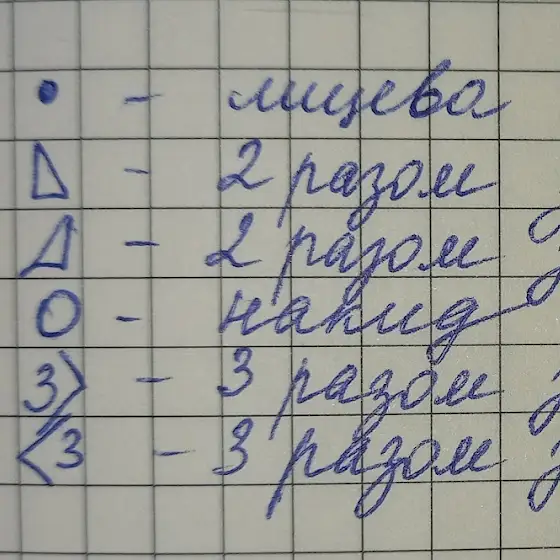 • - лицева
◺ - 2 разом
◿ - 2 разом
О - накид
3> - 3 разом
<3 - 3 разом